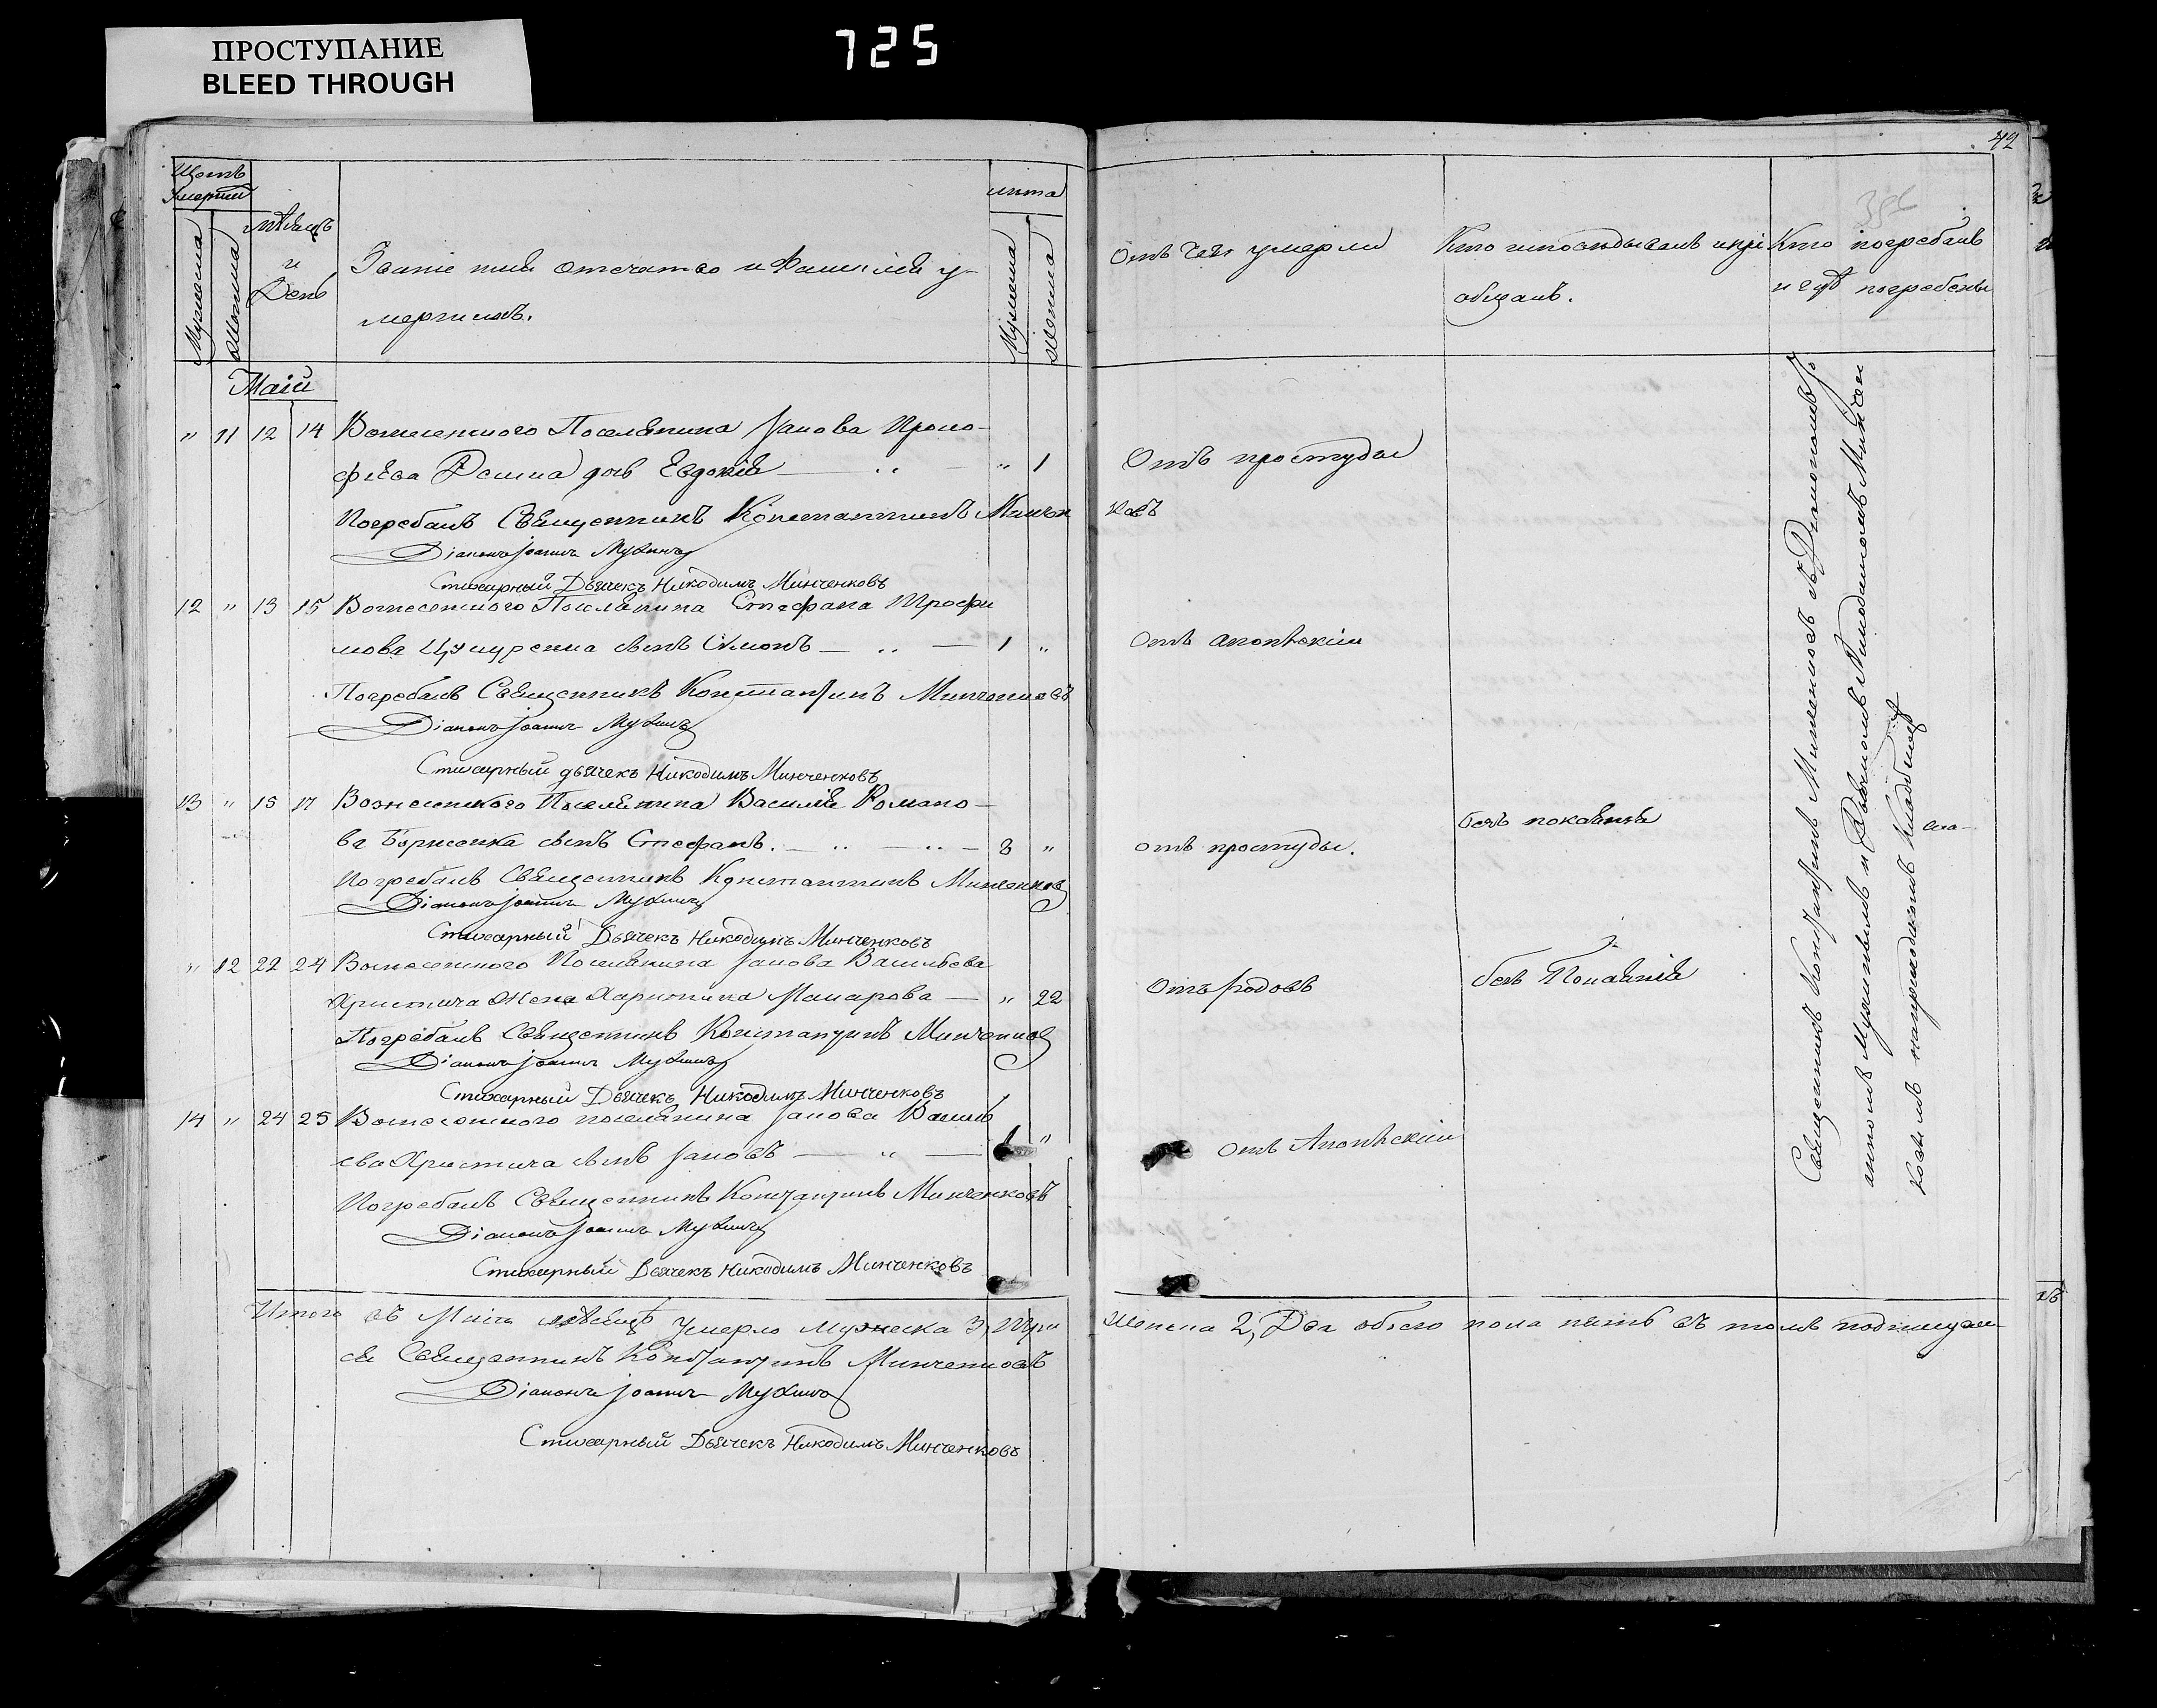 ПРОСТУПАНИЕ
BLEED THROUGH
725
42
Щетъ
Умершй
Мужеска
Женска
мѣсяцъ
и
День
Званіе имя отечество и Фамилія у-
мершихъ.
лѣта
Мужеска
Женска
Отъ чего умерли
Кто исповѣдывалъ и прі
общалъ.
Кто погребалъ
и гдѣ погребены
Маій
" 11 12 14 Вознесенского Поселянина Іакова Проко-
фіева дочь Евдокія " 1
Отъ простуды
Погребалъ Священникъ Константинъ Минчен
ковъ
Діаконъ Іоаннъ Мухинъ
Стихарный Дьячекъ Никодимъ Минченковъ
12 " 13 15 Вознесенского Поселянина Стефана Трофи
мова сынъ Симонъ 1 "
Отъ апоплексіи
Погребалъ Священникъ Константинъ Минченковъ
Діаконъ Іоаннъ Мухинъ
Стихарный дьячекъ Никодимъ Минченковъ
13 " 15 17 Вознесенского Поселянина Василія Романо-
ва Борисенка сынъ Стефанъ. 3 "
отъ простуды.
безъ покаянія
Погребалъ Священникъ Константинъ Минченковъ
Діаконъ Іоаннъ Мухинъ
Стихарный Дьячекъ Никодимъ Минченковъ
" 12 22 24 Вознесенского Поселянина Іакова Васильева
Христича Жена Харитина Макарова " 22
Отъ родовъ
безъ Покаянія
Погребалъ Священникъ Константинъ Минченковъ
Діаконъ Іоаннъ Мухинъ
Стихарный Дьячекъ Никодимъ Минченковъ
14 " 24 25 Вознесенского поселянина Іакова Василь
ева Христича сынъ Іаковъ 1 "
Отъ Апоплексіи
Погребалъ Священникъ Константинъ Минченковъ
Діаконъ Іоаннъ Мухинъ
Стихарный Дьячекъ Никодимъ Минченковъ
Священникъ Константинъ Минченковъ съ Діакономъ Іо
анномъ Мухинымъ и Дьячкомъ Никодимомъ Минчен
ковымъ на приходскомъ кладбищѣ
Итого въ Маіи мѣсяцѣ Умерло Мужеска 3, Три
Женска 2, Два обоего пола пять въ томъ подпишуем-
ся Священникъ Константинъ Минченковъ
Діаконъ Іоаннъ Мухинъ
Стихарный Дьячекъ Никодимъ Минченковъ